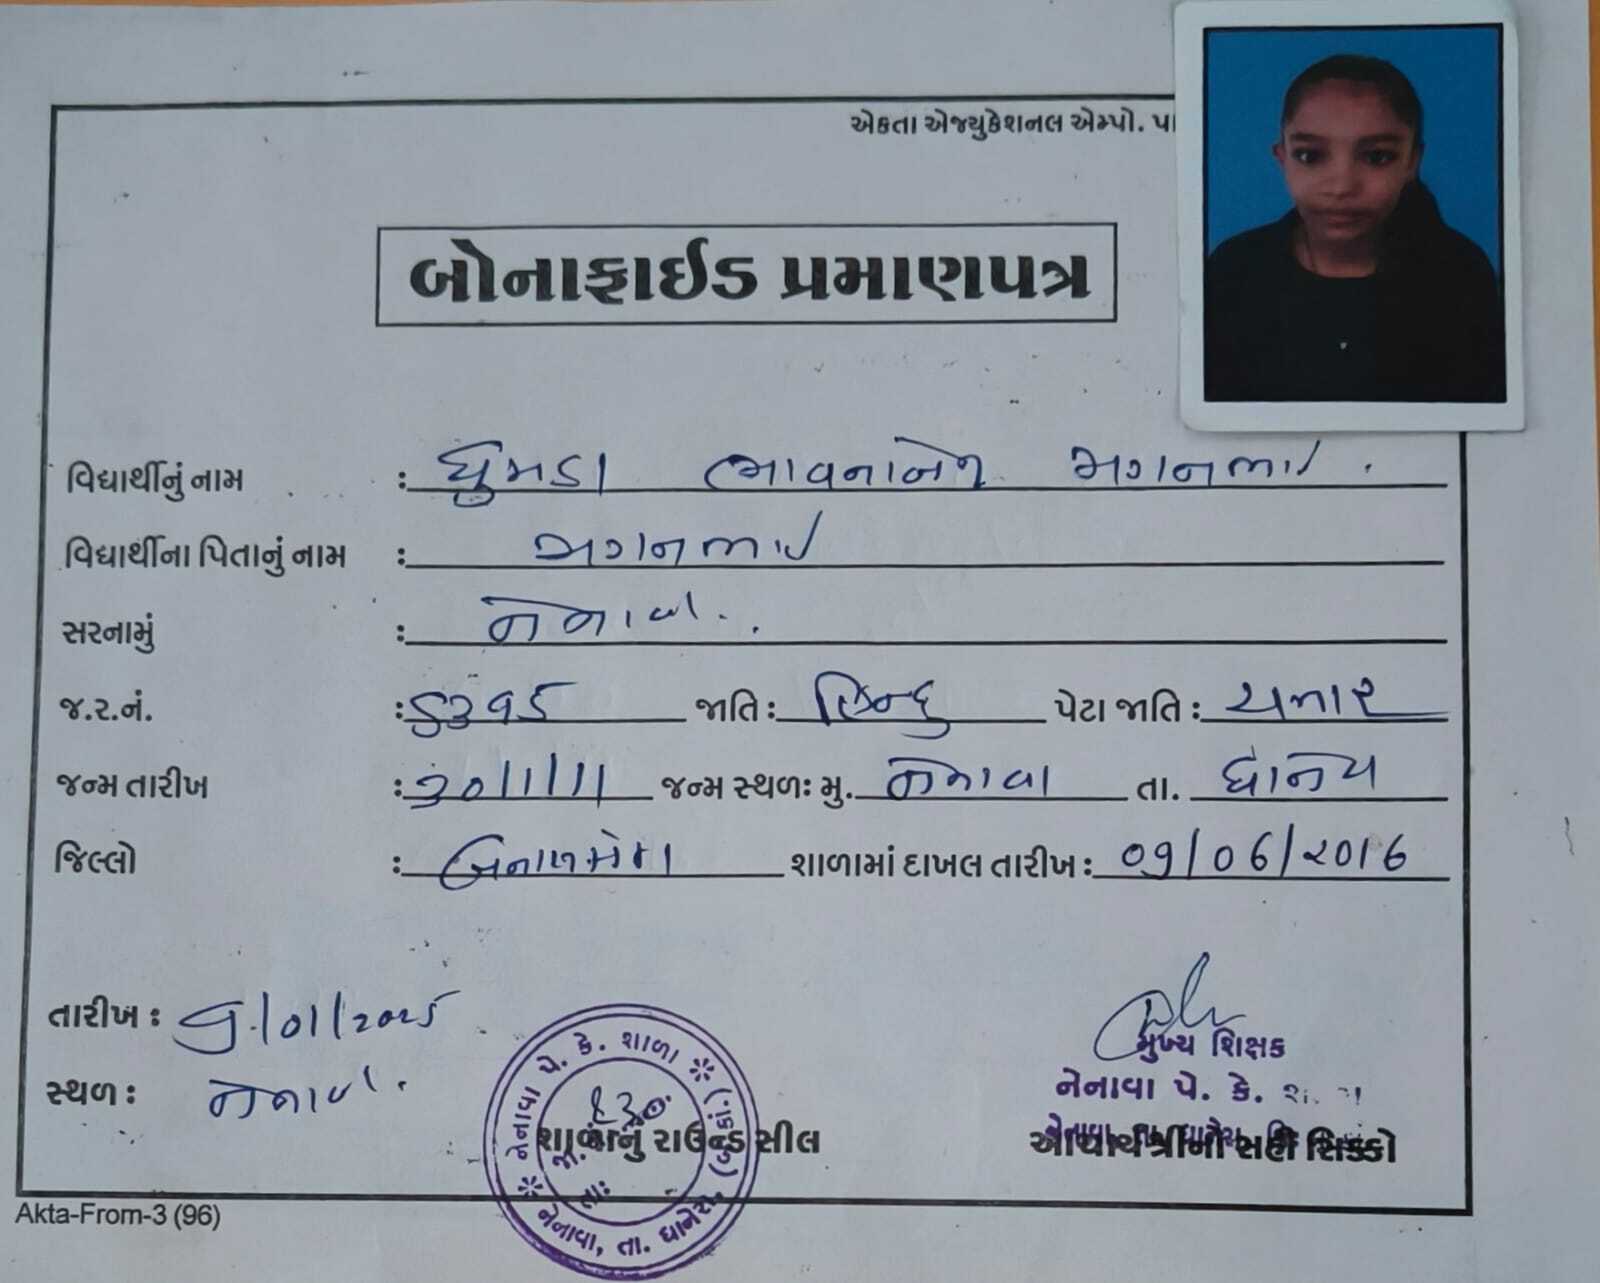 એકતા એજ્યુકેશનલ એમ્પો. પા
બોનાફાઈડ પ્રમાણપત્ર
વિદ્યાર્થીનું નામ : ધુમડા ભાવનાબેન મગનભાઈ .
વિદ્યાર્થીના પિતાનું નામ : મગનભાઈ
સરનામું : નેનાવા . .
જ.ર.નં. : જાતિ : હિન્દુ પેટા જાતિ : ચમાર
જન્મ તારીખ : 30/1/11 જન્મ સ્થળઃ મુ. નેનાવા તા. ધાનેરા
જિલ્લો : બનાસકાંઠા શાળામાં દાખલ તારીખ : 09/06/2016
તારીખ : 9/01/2025
સ્થળ : નેનાવા .
નેનાવા પે. કે. શાળા
નેનાવા, તા. ધાનેરા, (બ.કાં.)
જા. 830
તાઃ
શાળાનું રાઉન્ડ સીલ
મુખ્ય શિક્ષક
નેનાવા પે. કે.
આચાર્યશ્રીની સહી સિક્કો
Akta-From-3 (96)